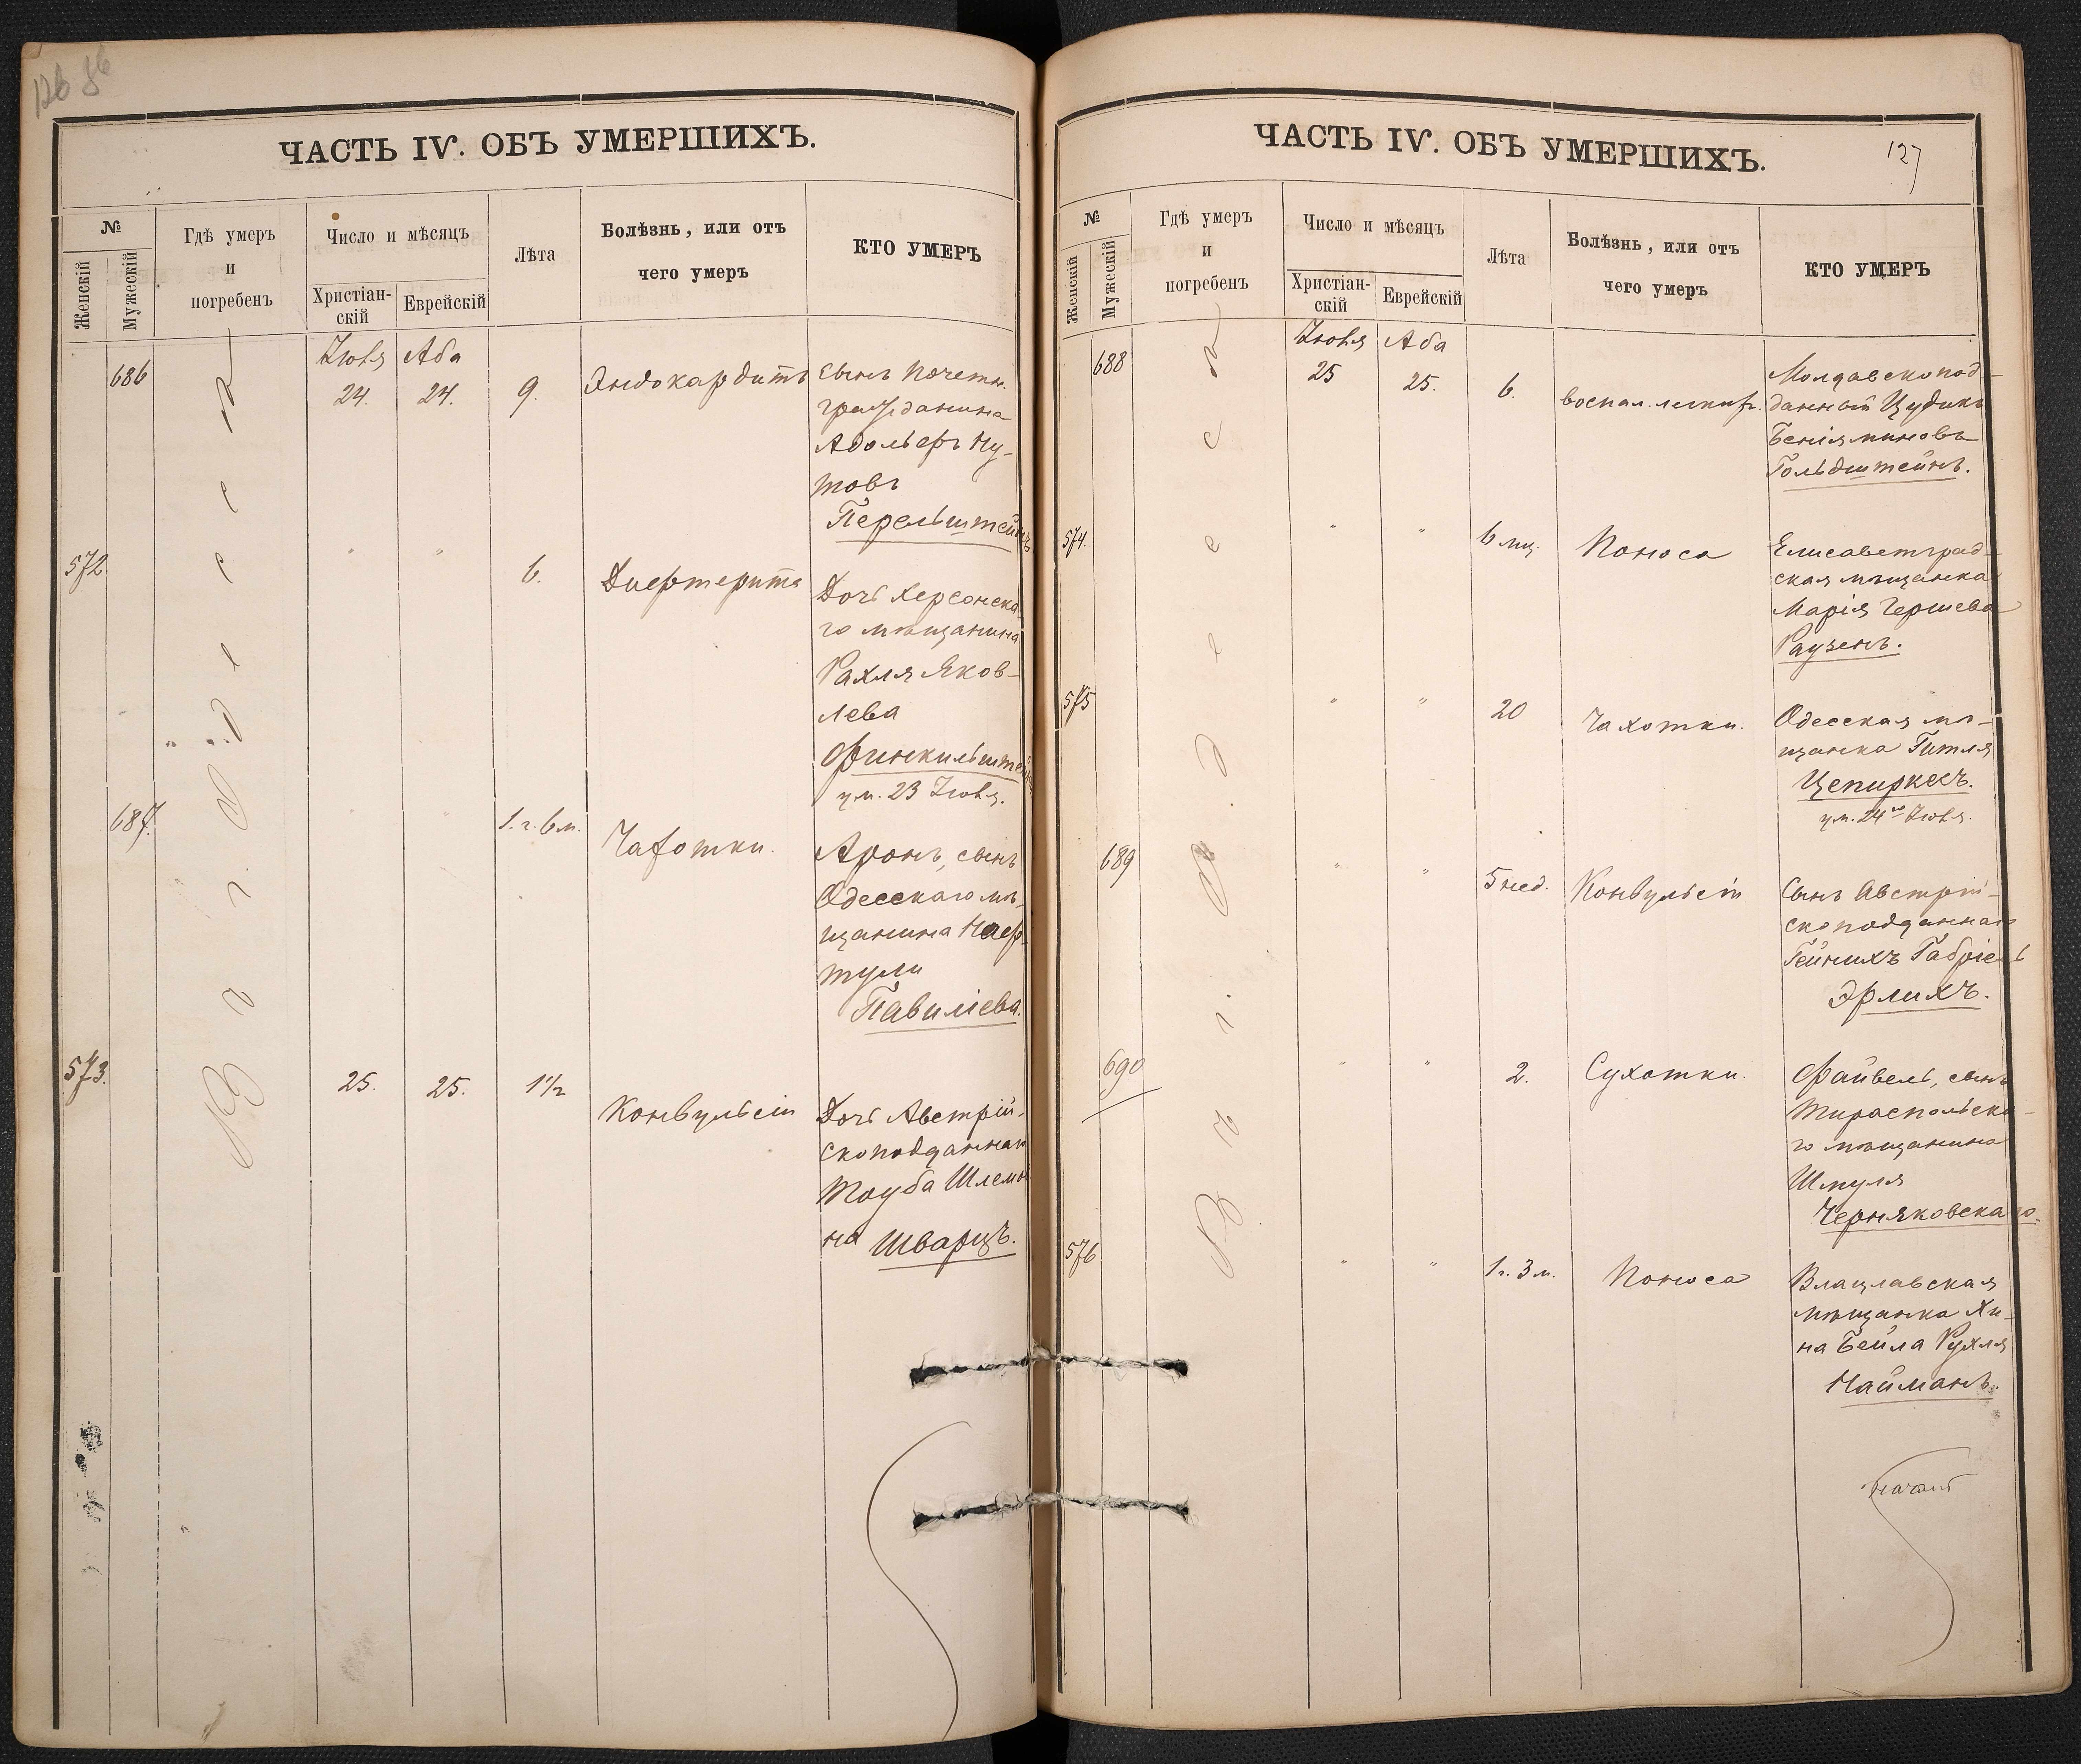 126 86
ЧАСТЬ IV. ОБЪ УМЕРШИХЪ.
№
Женскій
Мужескій
Гдѣ умеръ
и
погребенъ
Число и мѣсяцъ
Христіан-
скій
Еврейскій
Лѣта
Болѣзнь, или отъ
чего умеръ
КТО УМЕРЪ
Въ г. Одессѣ
686
Іюля Аба
24. 24.
9.
Эндокардитъ
Сынъ почетн.
гражданина
Адольфъ Ну-
товъ
Перельштейнъ
572
" "
6.
Дифтерита
Дочь Херсонска-
го мѣщанина
Рахля Яков-
лева
Финкильштейнъ
ум. 23 Іюля.
687.
" "
1.г. 6 м.
Чахотки.
Аронъ, сынъ
Одесскаго мѣ-
щанина Наф-
тули
Павиліева.
573.
25. 25.
1½
Конвульсіи
Дочь Австрій-
скоподданнаго
Тауба Шлемо-
на Шварцъ.
ЧАСТЬ IV. ОБЪ УМЕРШИХЪ.
127
№
Женскій
Мужескій
Гдѣ умеръ
и
погребенъ
Число и мѣсяцъ
Христіан-
скій
Еврейскій
Лѣта
Болѣзнь, или отъ
чего умеръ
КТО УМЕРЪ
Въ г. Одессѣ
688
Іюля Аба
25 25.
6.
воспал. легких.
Молдавскопод-
данный Цудикъ
Беніяминовъ
Гольдштейнъ.
574.
" "
6 мц.
Поноса
Елисаветград-
ская мѣщанка
Марія Гершева
Раузенъ.
575
" "
20
Чахотки.
Одесская мѣ-
щанка Гитля
Цепиркесъ.
ум. 24го Іюля.
689
" "
5 нед.
Конвульсіи
Сынъ Австрій-
скоподданнаго
Гейнихъ Габріель
Эрлихъ.
690
" "
2.
Сухотки.
Файвель, сынъ
Тираспольска-
го мѣщанина
Шмуля
Черняковскаго.
576
" "
1г. 3 м.
Поноса
Влацлавская
мѣщанка Хи-
на Бейла Рухля
Найманъ.